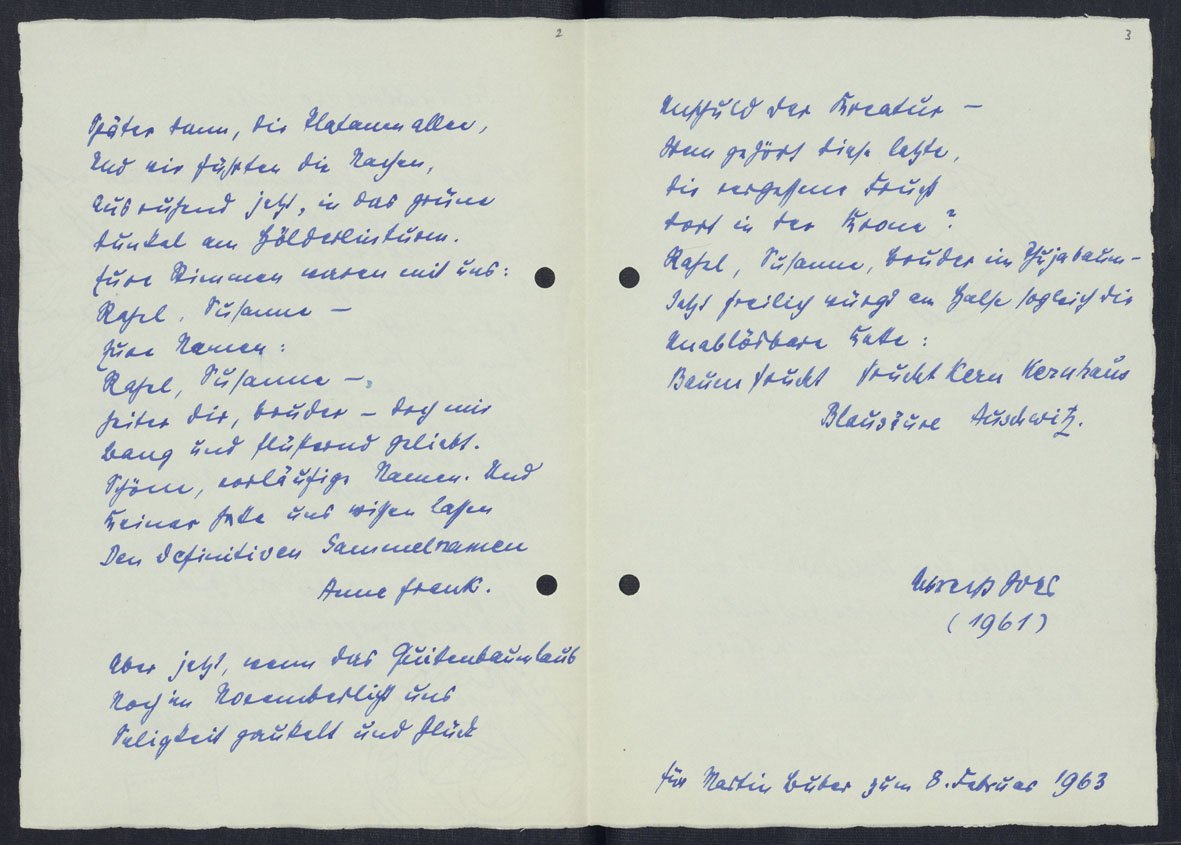 2
Später dann, die Platanenallee,
Und wir führten die Nachen,
Ausruhend jetzt, in das grüne
Dunkel am Hölderlinturm.
Eure Stimmen waren mit uns:
Rahel, Susanne –
Eure Namen:
Rahel, Susanne –,
Heiter dir, Bruder – doch mir
Bang und flüsternd geliebt.
Schöne, vorläufige Namen. Und
Keiner hatte uns wissen lassen
Den definitiven Sammelnamen
Anne Frank.
Aber jetzt, wenn das Quittenbaumlaub
Noch im Novemberlicht uns
Seligkeit gaukelt und Glück
3
Unschuld der Kreatur –
Wem gehört diese letzte,
die vergessene Frucht
dort in der Krone?
Rahel, Susanne, Bruder im Thujabaum –
Jetzt freilich würgt am Halse sogleich die
Unablösbare Kette:
Baum Frucht Frucht Kern Kernhaus
Blausäure Auschwitz.
Albrecht Goes
(1961)
für Martin Buber zum 8. Februar 1963